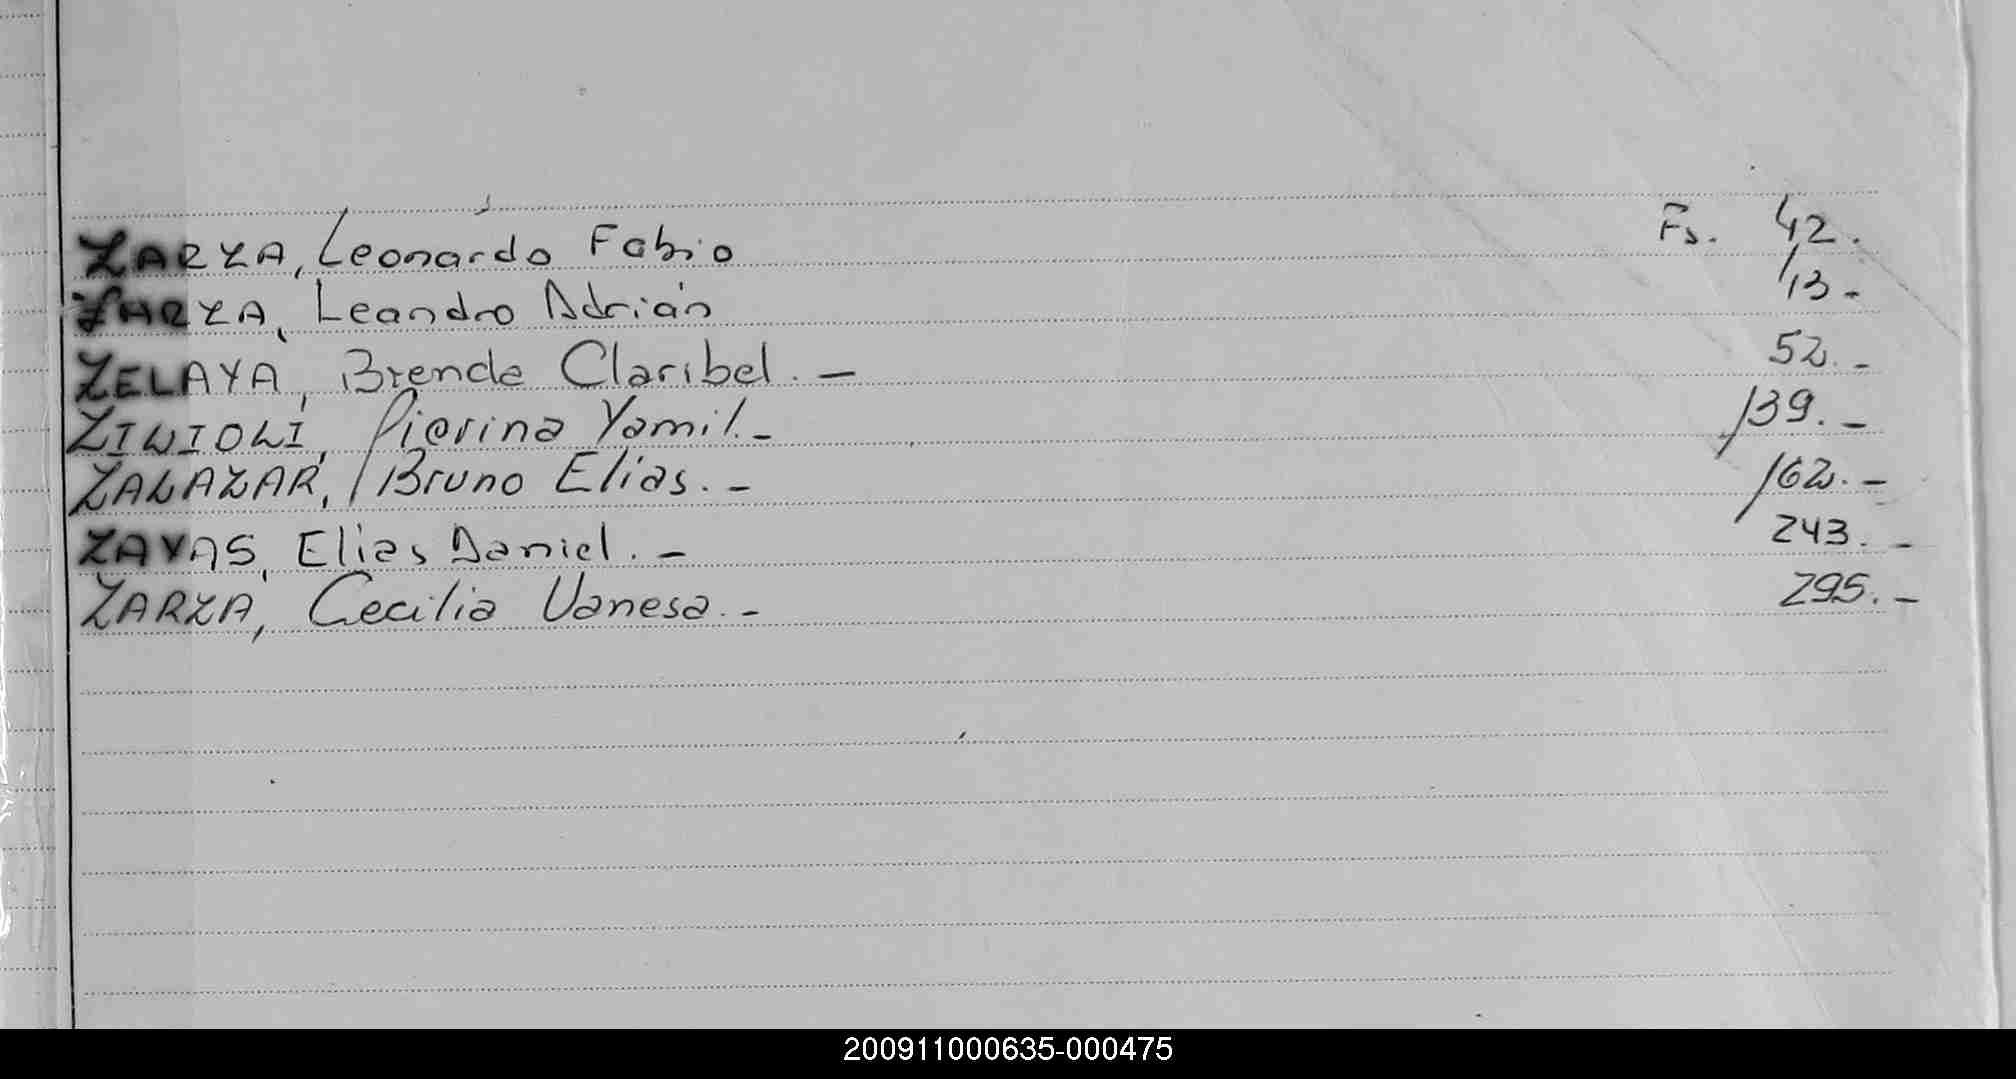 ZARZA, Leonardo Fabio Fs. 42.
ZARZA, Leandro Adrián 13-
ZELAYA, Brenda Claribel. - 52. -
Pierina Yamil. - 139. -
ZALAZAR, Bruno Elias. - 162. -
ZAYAS, Elias Daniel. - 243. -
ZARZA, Cecilia Vanesa. - 295. -
200911000635-000475